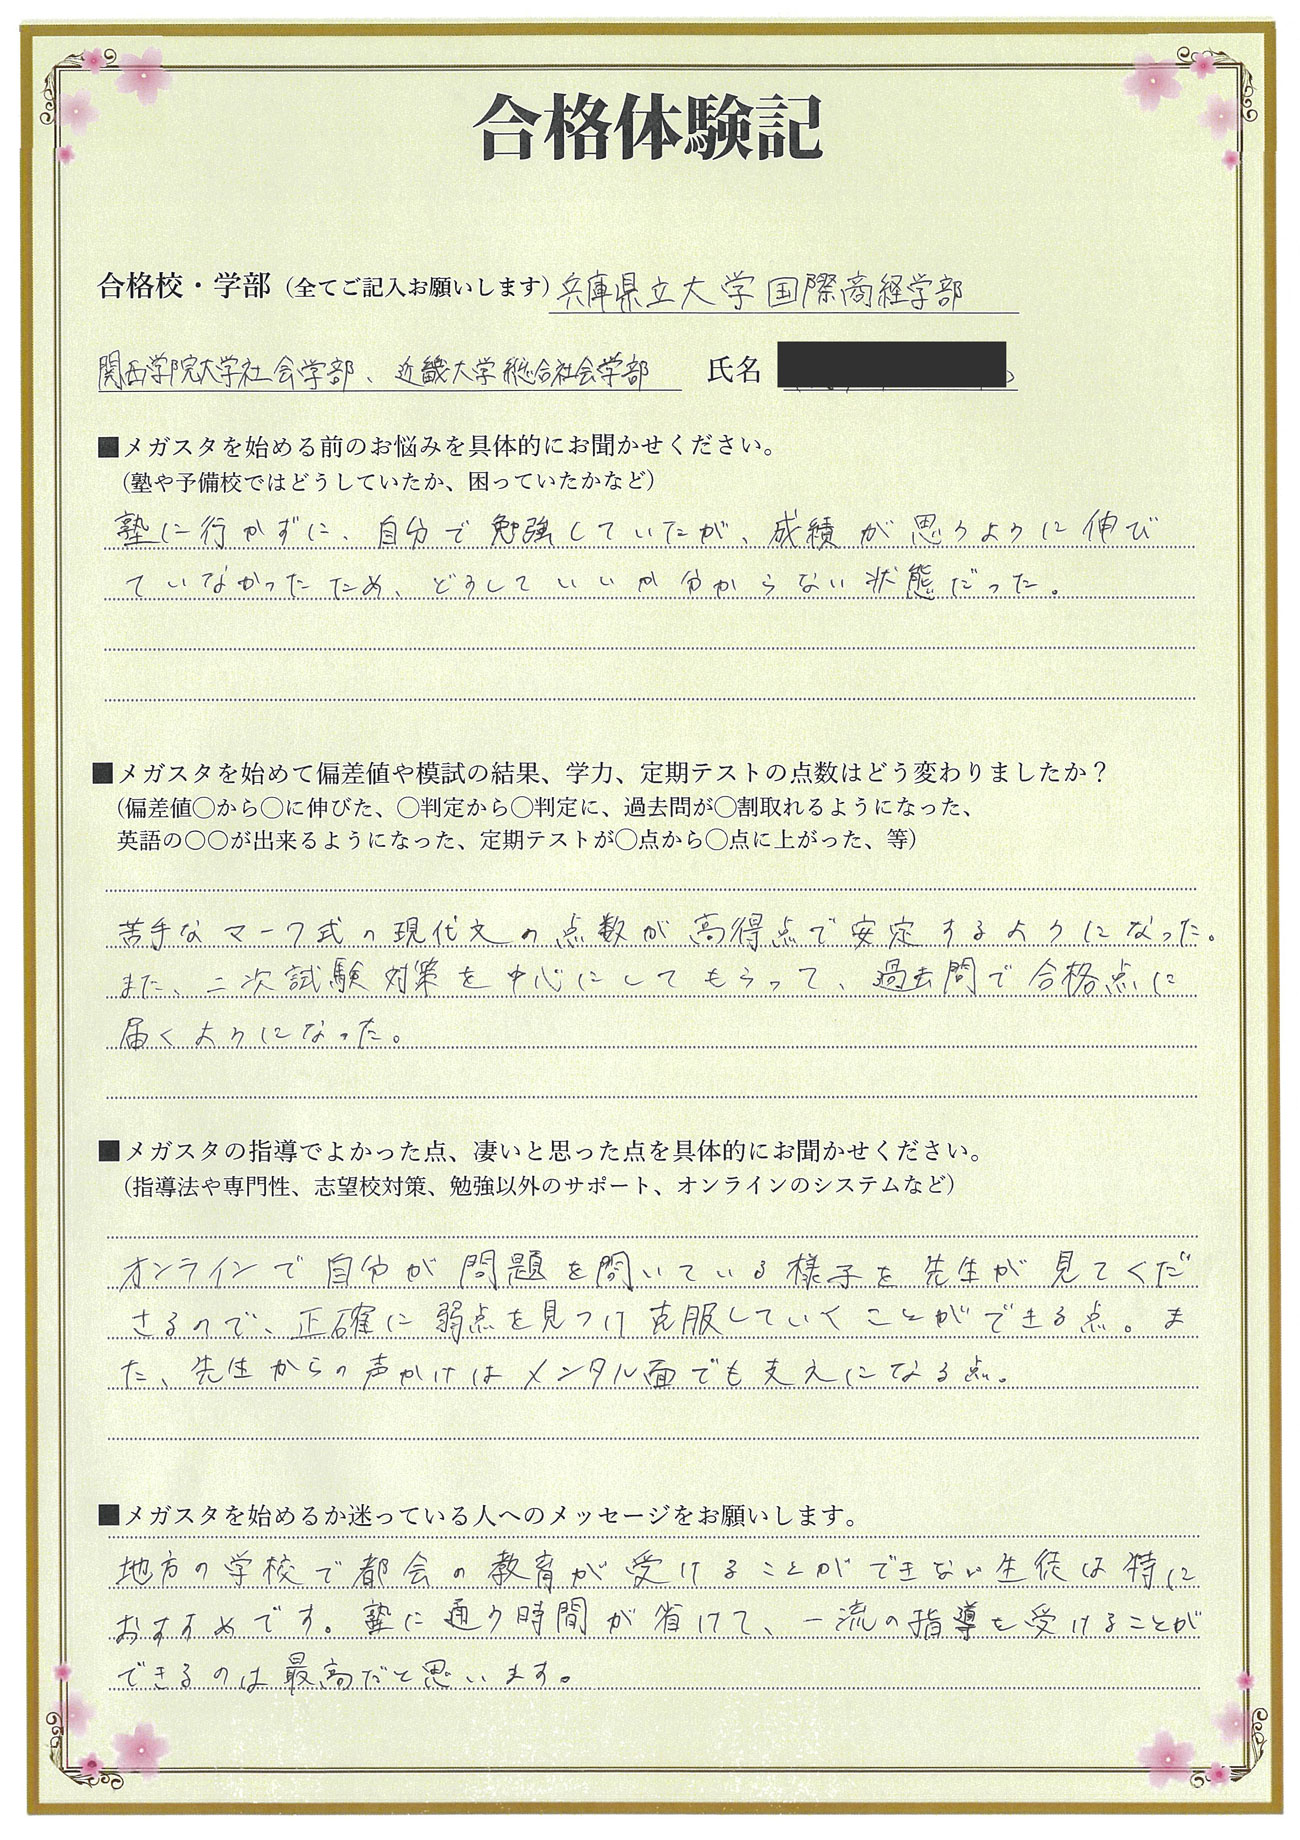 合格体験記
合格校・学部（全てご記入お願いします）兵庫県立大学 国際商経学部
関西学院大学社会学部、近畿大学総合社会学部 氏名
■メガスタを始める前のお悩みを具体的にお聞かせください。
（塾や予備校ではどうしていたか、困っていたかなど）
塾に行かずに、自分で勉強していたが、成績が思うように伸び
ていなかったため、どうしていいか分からない状態だった。
■メガスタを始めて偏差値や模試の結果、学力、定期テストの点数はどう変わりましたか？
（偏差値〇から〇に伸びた、〇判定から〇判定に、過去問が〇割取れるようになった、
英語の〇〇が出来るようになった、定期テストが〇点から〇点に上がった、等）
苦手なマーク式の現代文の点数が高得点で安定するようになった。
また、二次試験対策を中心にしてもらって、過去問で合格点に
届くようになった。
■メガスタの指導でよかった点、凄いと思った点を具体的にお聞かせください。
（指導法や専門性、志望校対策、勉強以外のサポート、オンラインのシステムなど）
オンラインで自分が問題を問いている様子を先生が見てくだ
さるので、正確に弱点を見つけ克服していくことができる点。ま
た、先生からの声かけはメンタル面でも支えになる点。
■メガスタを始めるか迷っている人へのメッセージをお願いします。
地方の学校で都会の教育が受けることができない生徒は特に
おすすめです。塾に通う時間が省けて、一流の指導を受けることが
できるのは最高だと思います。